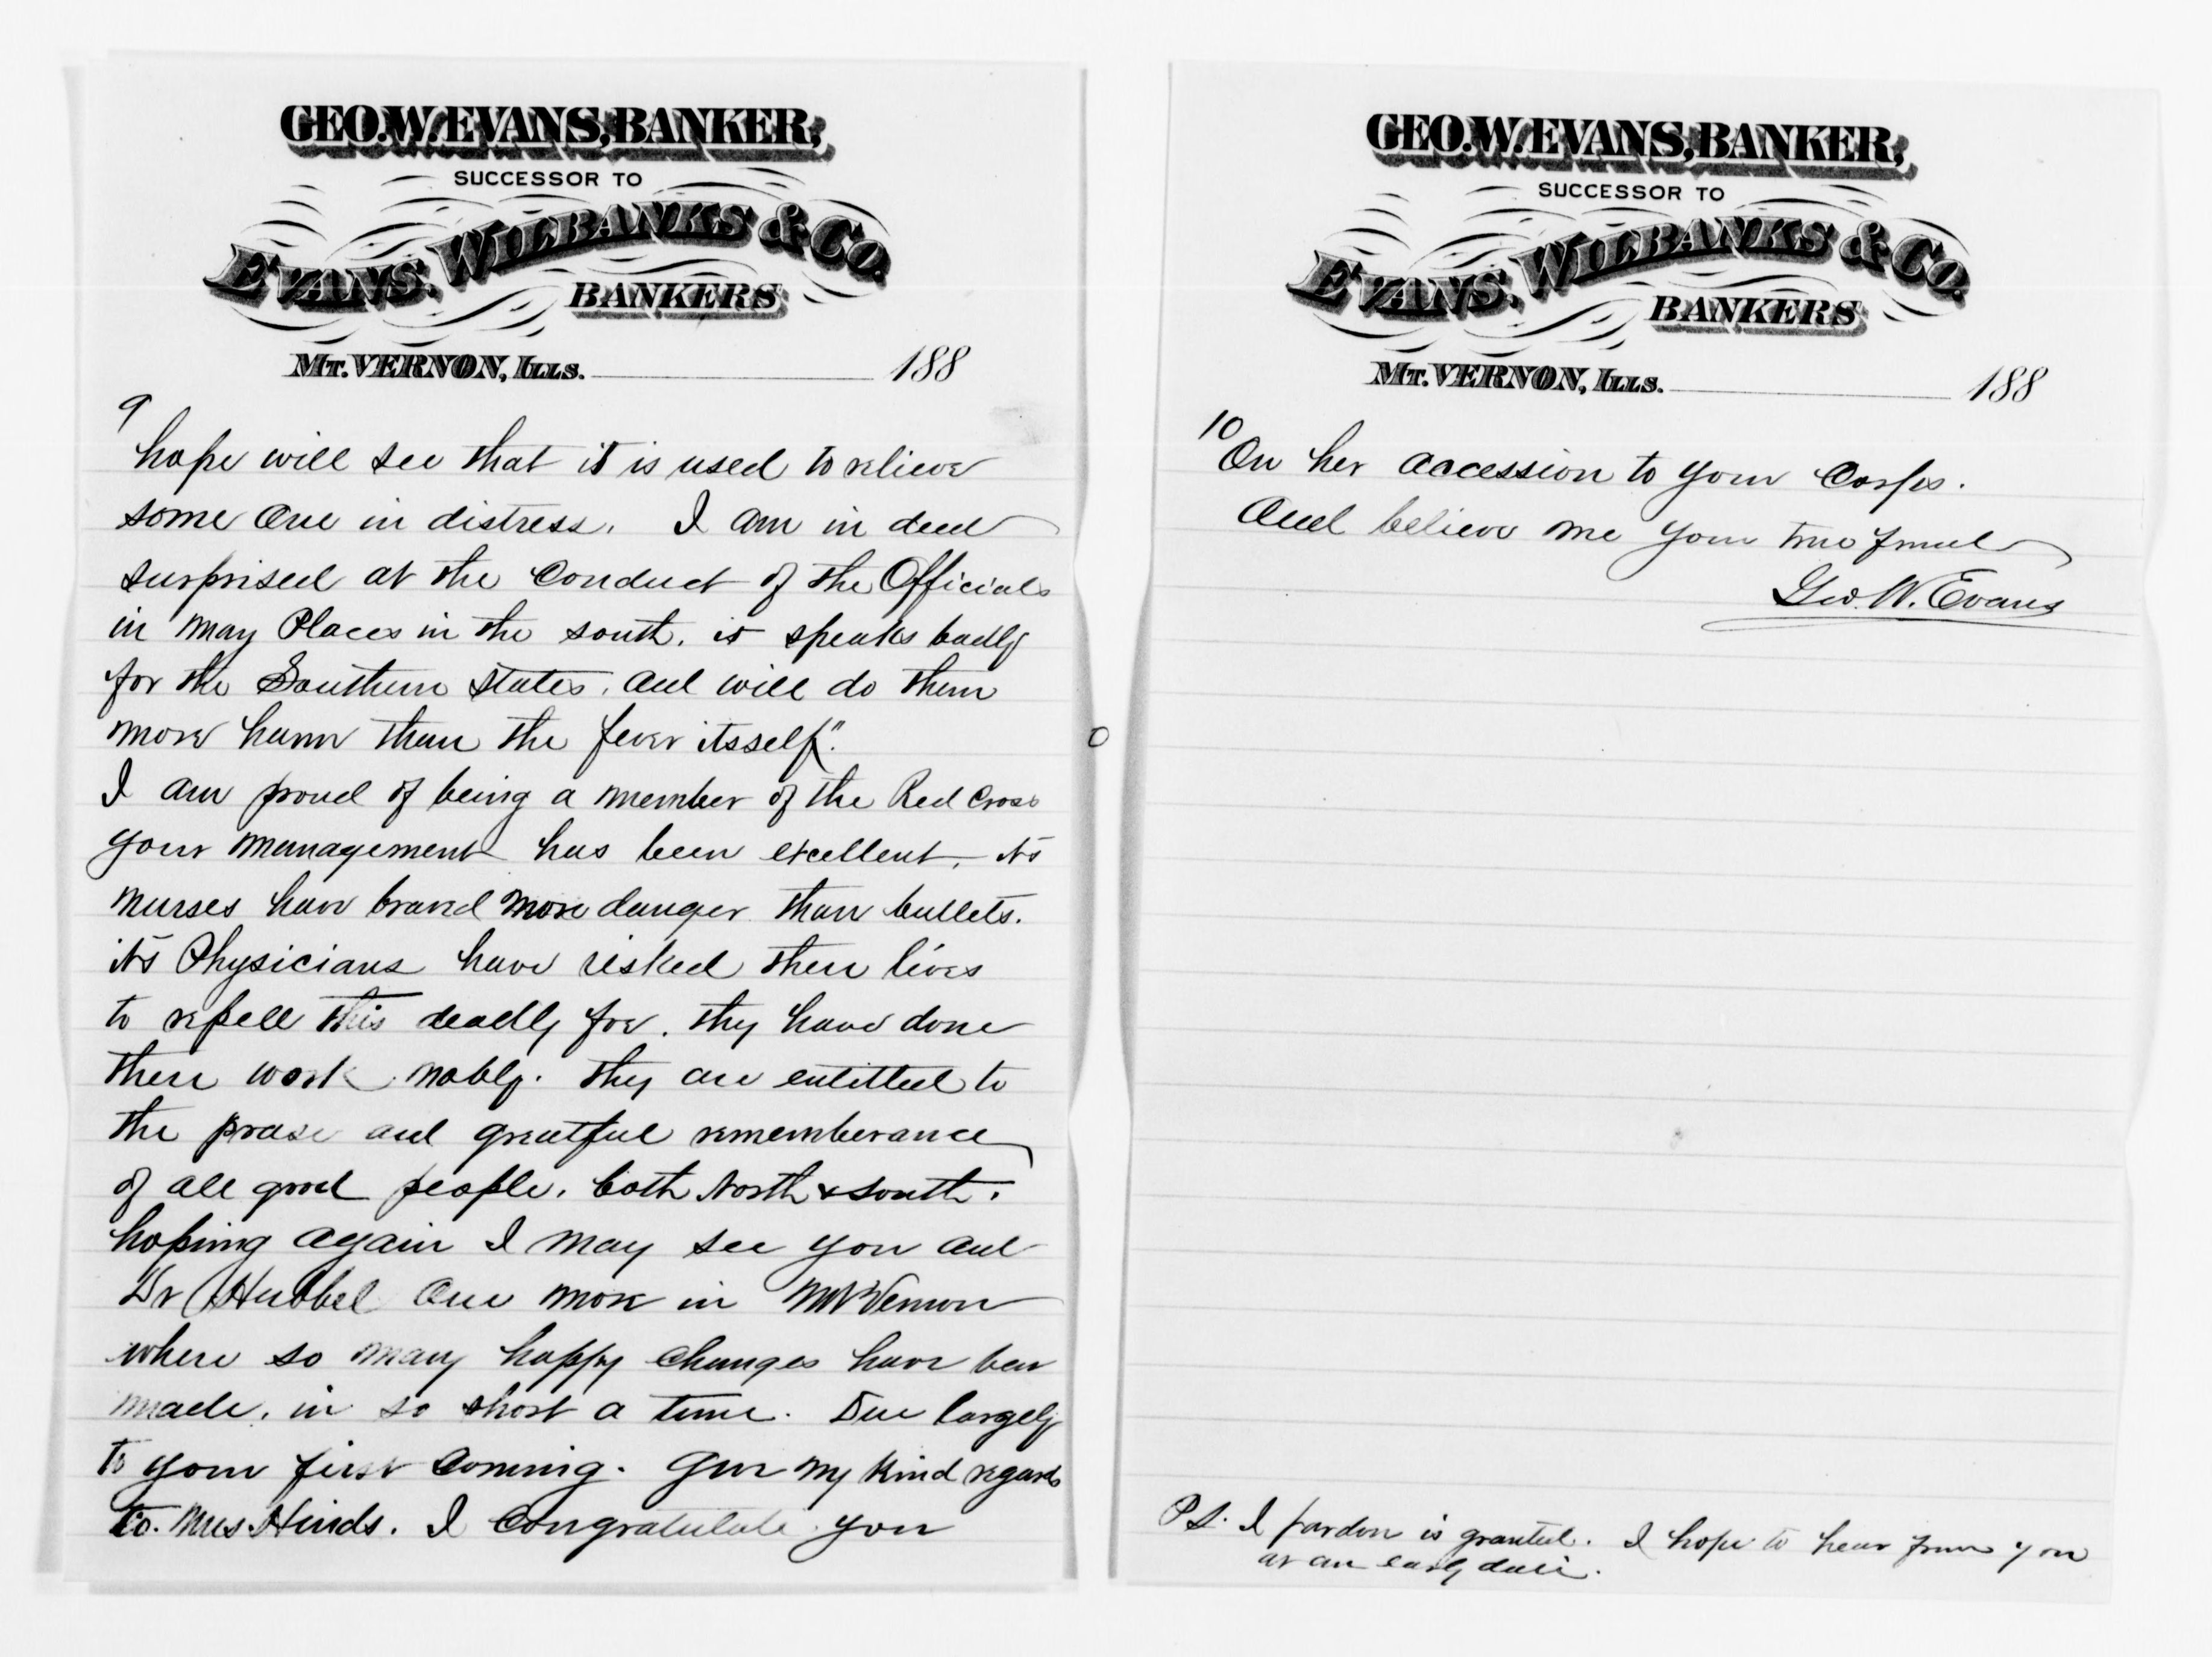 GEO. W. EVANS, BANKER,
SUCCESSOR TO
EVANS, WILBANKS & CO.
BANKERS
MT. VERNON, ILLS. 188
9
hope will see that it is used to relieve
some one in distress. I am in deed
surprised at the Conduct of the Officials
in may Places in the south. it speaks badly
for the Southern States, and will do them
more harm than the fever itsself".
I am proud of being a member of the Red Cross
your management has been excellent, its
nurses have braved more danger than bullets.
its Physicians have risked their lives
to repell this deadly foe. they have done
their work nobly. they are entitled to
the praise and greatful rememberance
of all good people, both North & South.
hoping again I may see you and
Dr Hubbel one more in Mt Vernon
where so many happy changes have been
made, in so short a time. Due largely
to your first coming. Give my kind regards
to. Mrs Hinds. I congratulate you
GEO. W. EVANS, BANKER,
SUCCESSOR TO
EVANS, WILBANKS & CO.
BANKERS
MT. VERNON, ILLS. 188
10
On her accession to your Corps.
And believe me your true friend
Geo. W. Evans
P S. I pardon is granted. I hope to hear from you
at an early date.